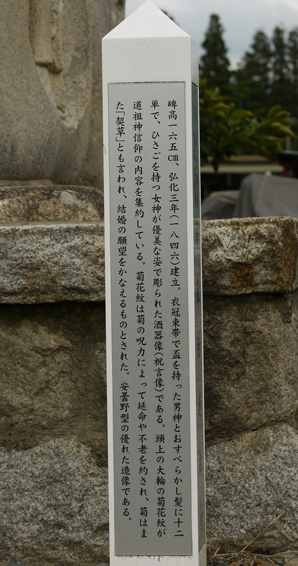 碑高一六五㎝、弘化三年(一八四六)建立。衣冠束帯で盃を持った男神とおすべらかし髪に十二
単で、ひさごを持つ女神が優美な姿で彫られた酒器像(祝言像)である。頭上の大輪の菊花紋が
道祖神信仰の内容を集約している。菊花紋は菊の呪力によって延命や不老を約され、菊はま
た「契草」とも言われ、結婚の願望をかなえるものとされた。安曇野型の優れた造像である。